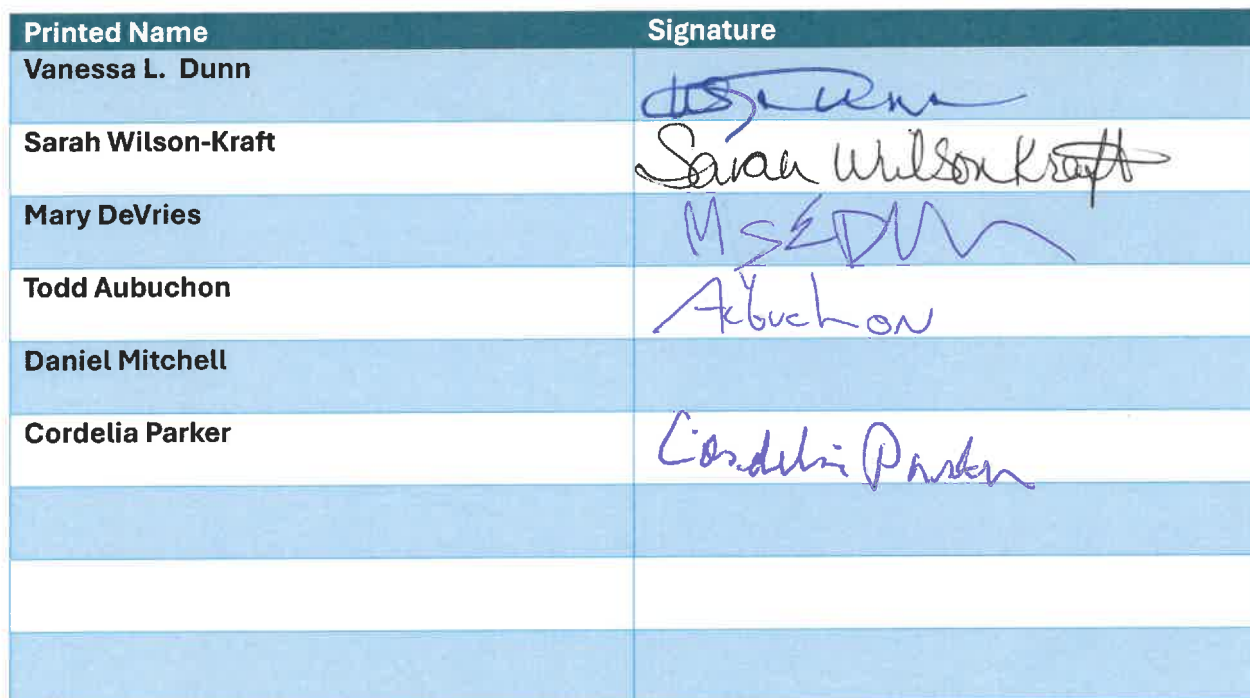 Printed Name Signature
Vanessa L. Dunn
Sarah Wilson-Kraft Sarah Wilson Kraft
Mary DeVries
Todd Aubuchon Aubuchon
Daniel Mitchell
Cordelia Parker Cordelia Parker